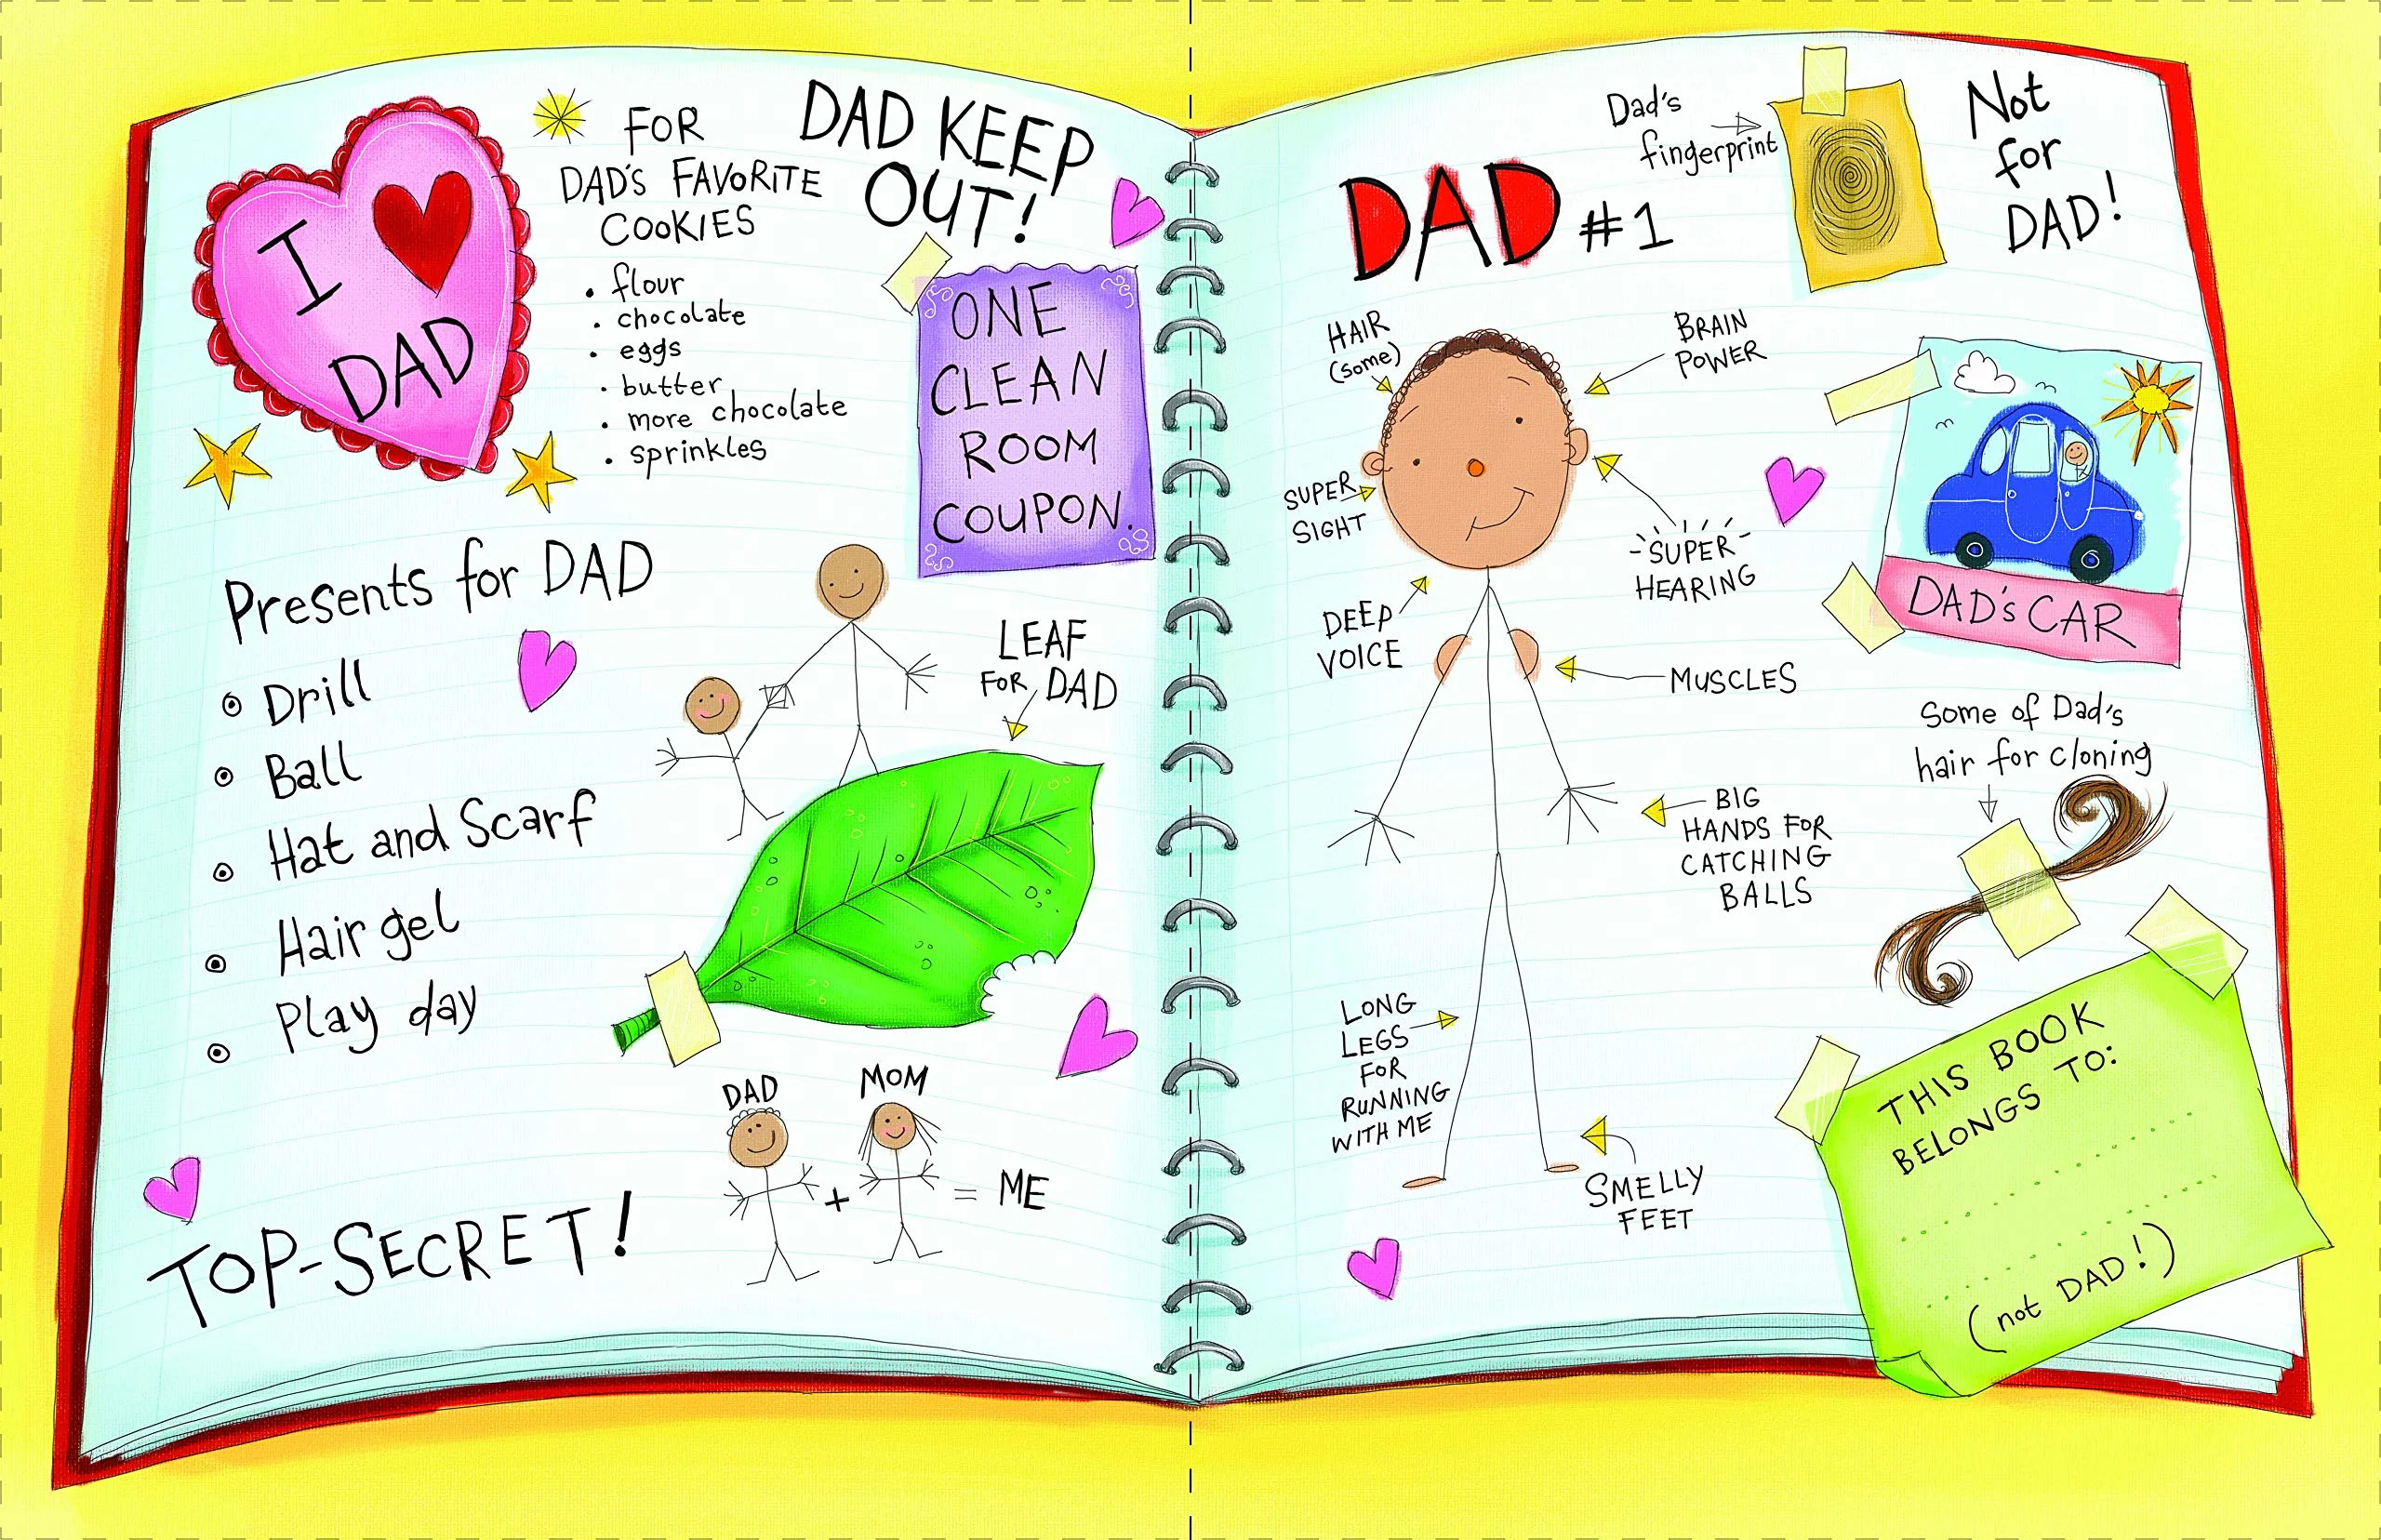 I
DAD
FOR
DAD'S FAVORITE
COOKIES
• flour
• chocolate
• eggs
• butter
• more chocolate
• sprinkles
DAD KEEP
OUT!
ONE
CLEAN
ROOM
COUPON.
Presents for DAD
Drill
Ball
Hat and Scarf
Hair gel
Play day
LEAF
FOR DAD
DAD
MOM
+
= ME
TOP-SECRET!
DAD #1
Dad's
fingerprint
Not
for
DAD!
HAIR
(some)
BRAIN
POWER
SUPER
SIGHT
SUPER
HEARING
DEEP
VOICE
MUSCLES
BIG
HANDS FOR
CATCHING
BALLS
LONG
LEGS
FOR
RUNNING
WITH ME
SMELLY
FEET
DAD'S CAR
Some of Dad's
hair for cloning
THIS BOOK
BELONGS TO:
(not DAD!)